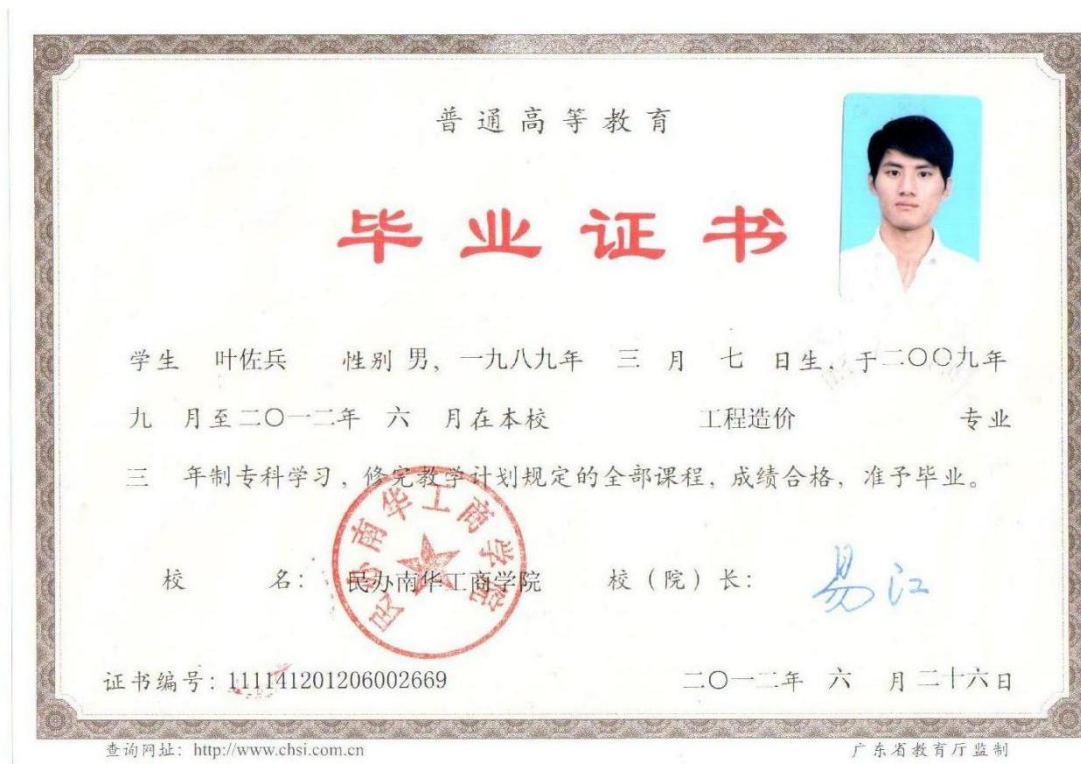 普通高等教育
毕业证书
学生 叶佐兵 性别 男，一九八九年 三 月 七 日生，于二〇〇九年
九 月至二〇一二年 六 月在本校 工程造价 专业
三 年制专科学习，修完教学计划规定的全部课程，成绩合格，准予毕业。
民办南华工商学院
校 名：民办南华工商学院 校（院）长：易江
证书编号：111141201206002669 二〇一二年 六 月 二十六日
查询网址：http://www.chsi.com.cn 广东省教育厅监制